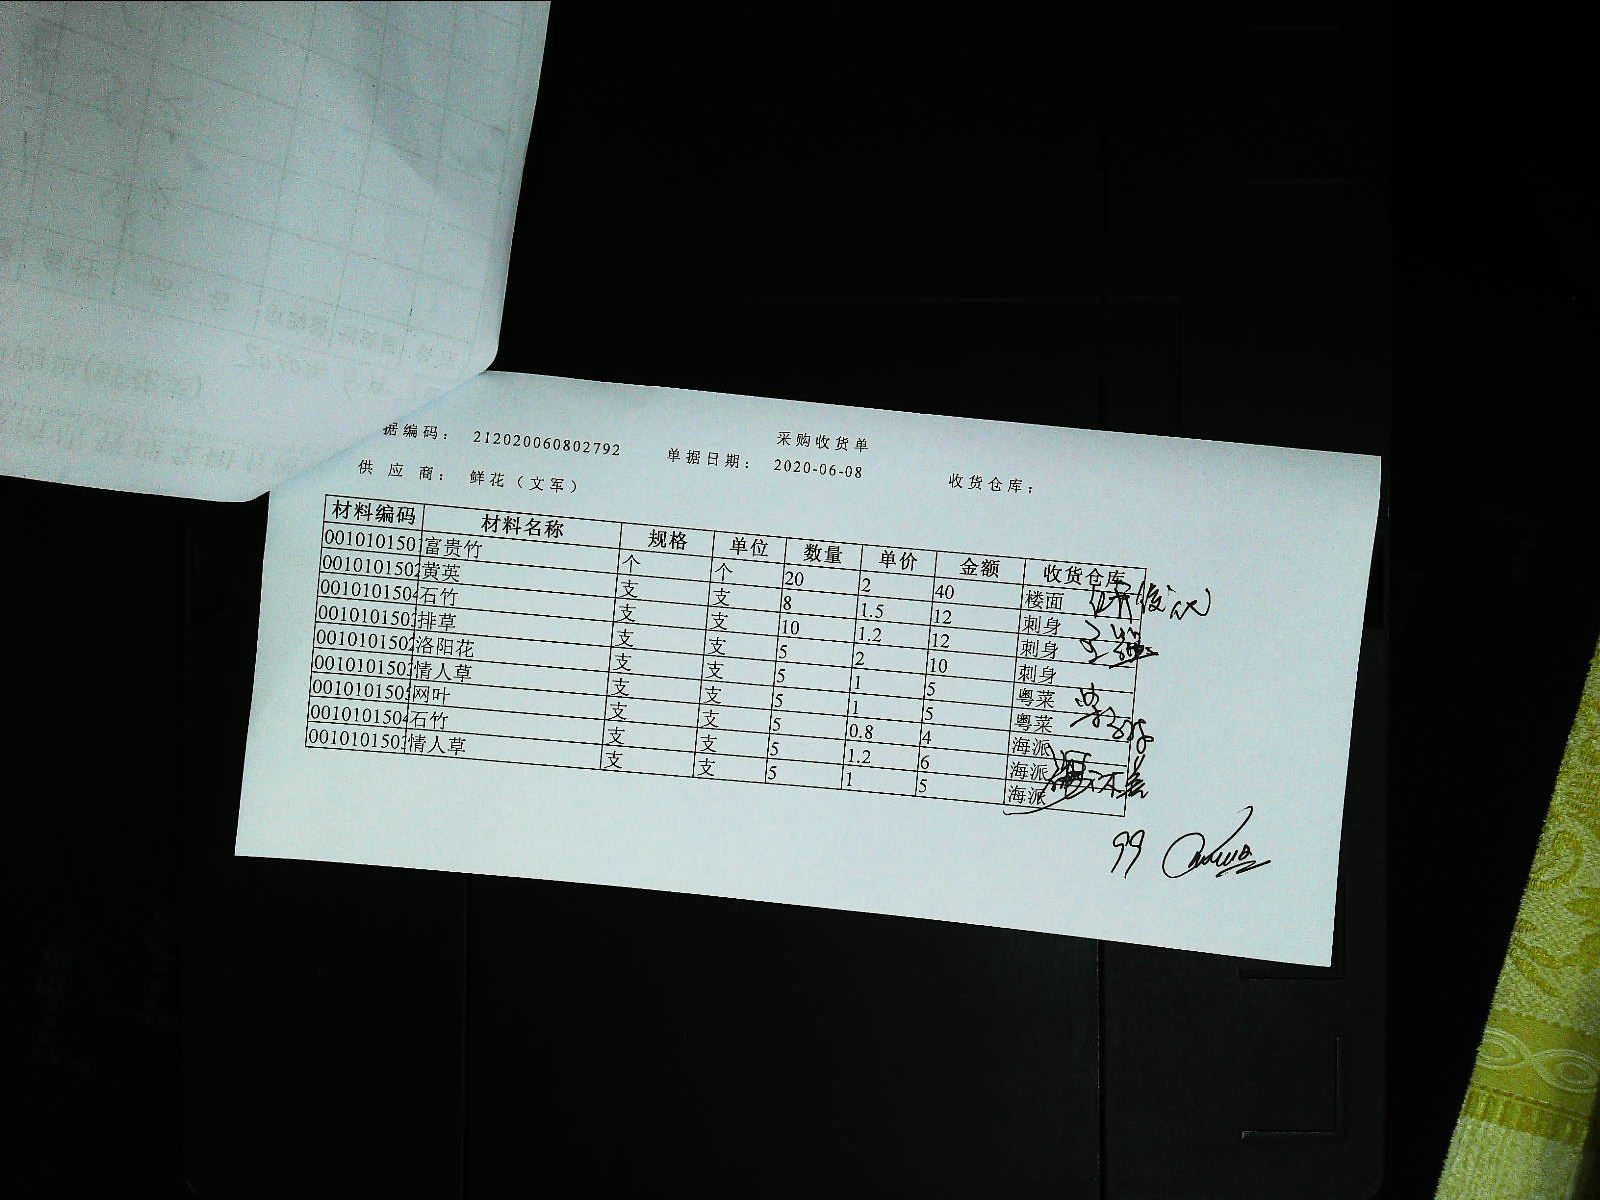 采购收货单
据编码： 212020060802792 单据日期： 2020-06-08 收货仓库；
供 应 商： 鲜花（文军）
材料编码 材料名称 规格 单位 数量 单价 金额 收货仓库
0010101501 富贵竹 个 个 20 2 40 楼面
0010101502 黄英 支 支 8 1.5 12 刺身
0010101504 石竹 支 支 10 1.2 12 刺身
001010150 排草 支 支 5 2 10 刺身
0010101502 洛阳花 支 支 5 1 5 粤菜
001010150 情人草 支 支 5 1 5 粤菜
001010150 网叶 支 支 5 0.8 4 海派
0010101504 石竹 支 支 5 1.2 6 海派
001010150 情人草 支 支 5 1 5 海派
99